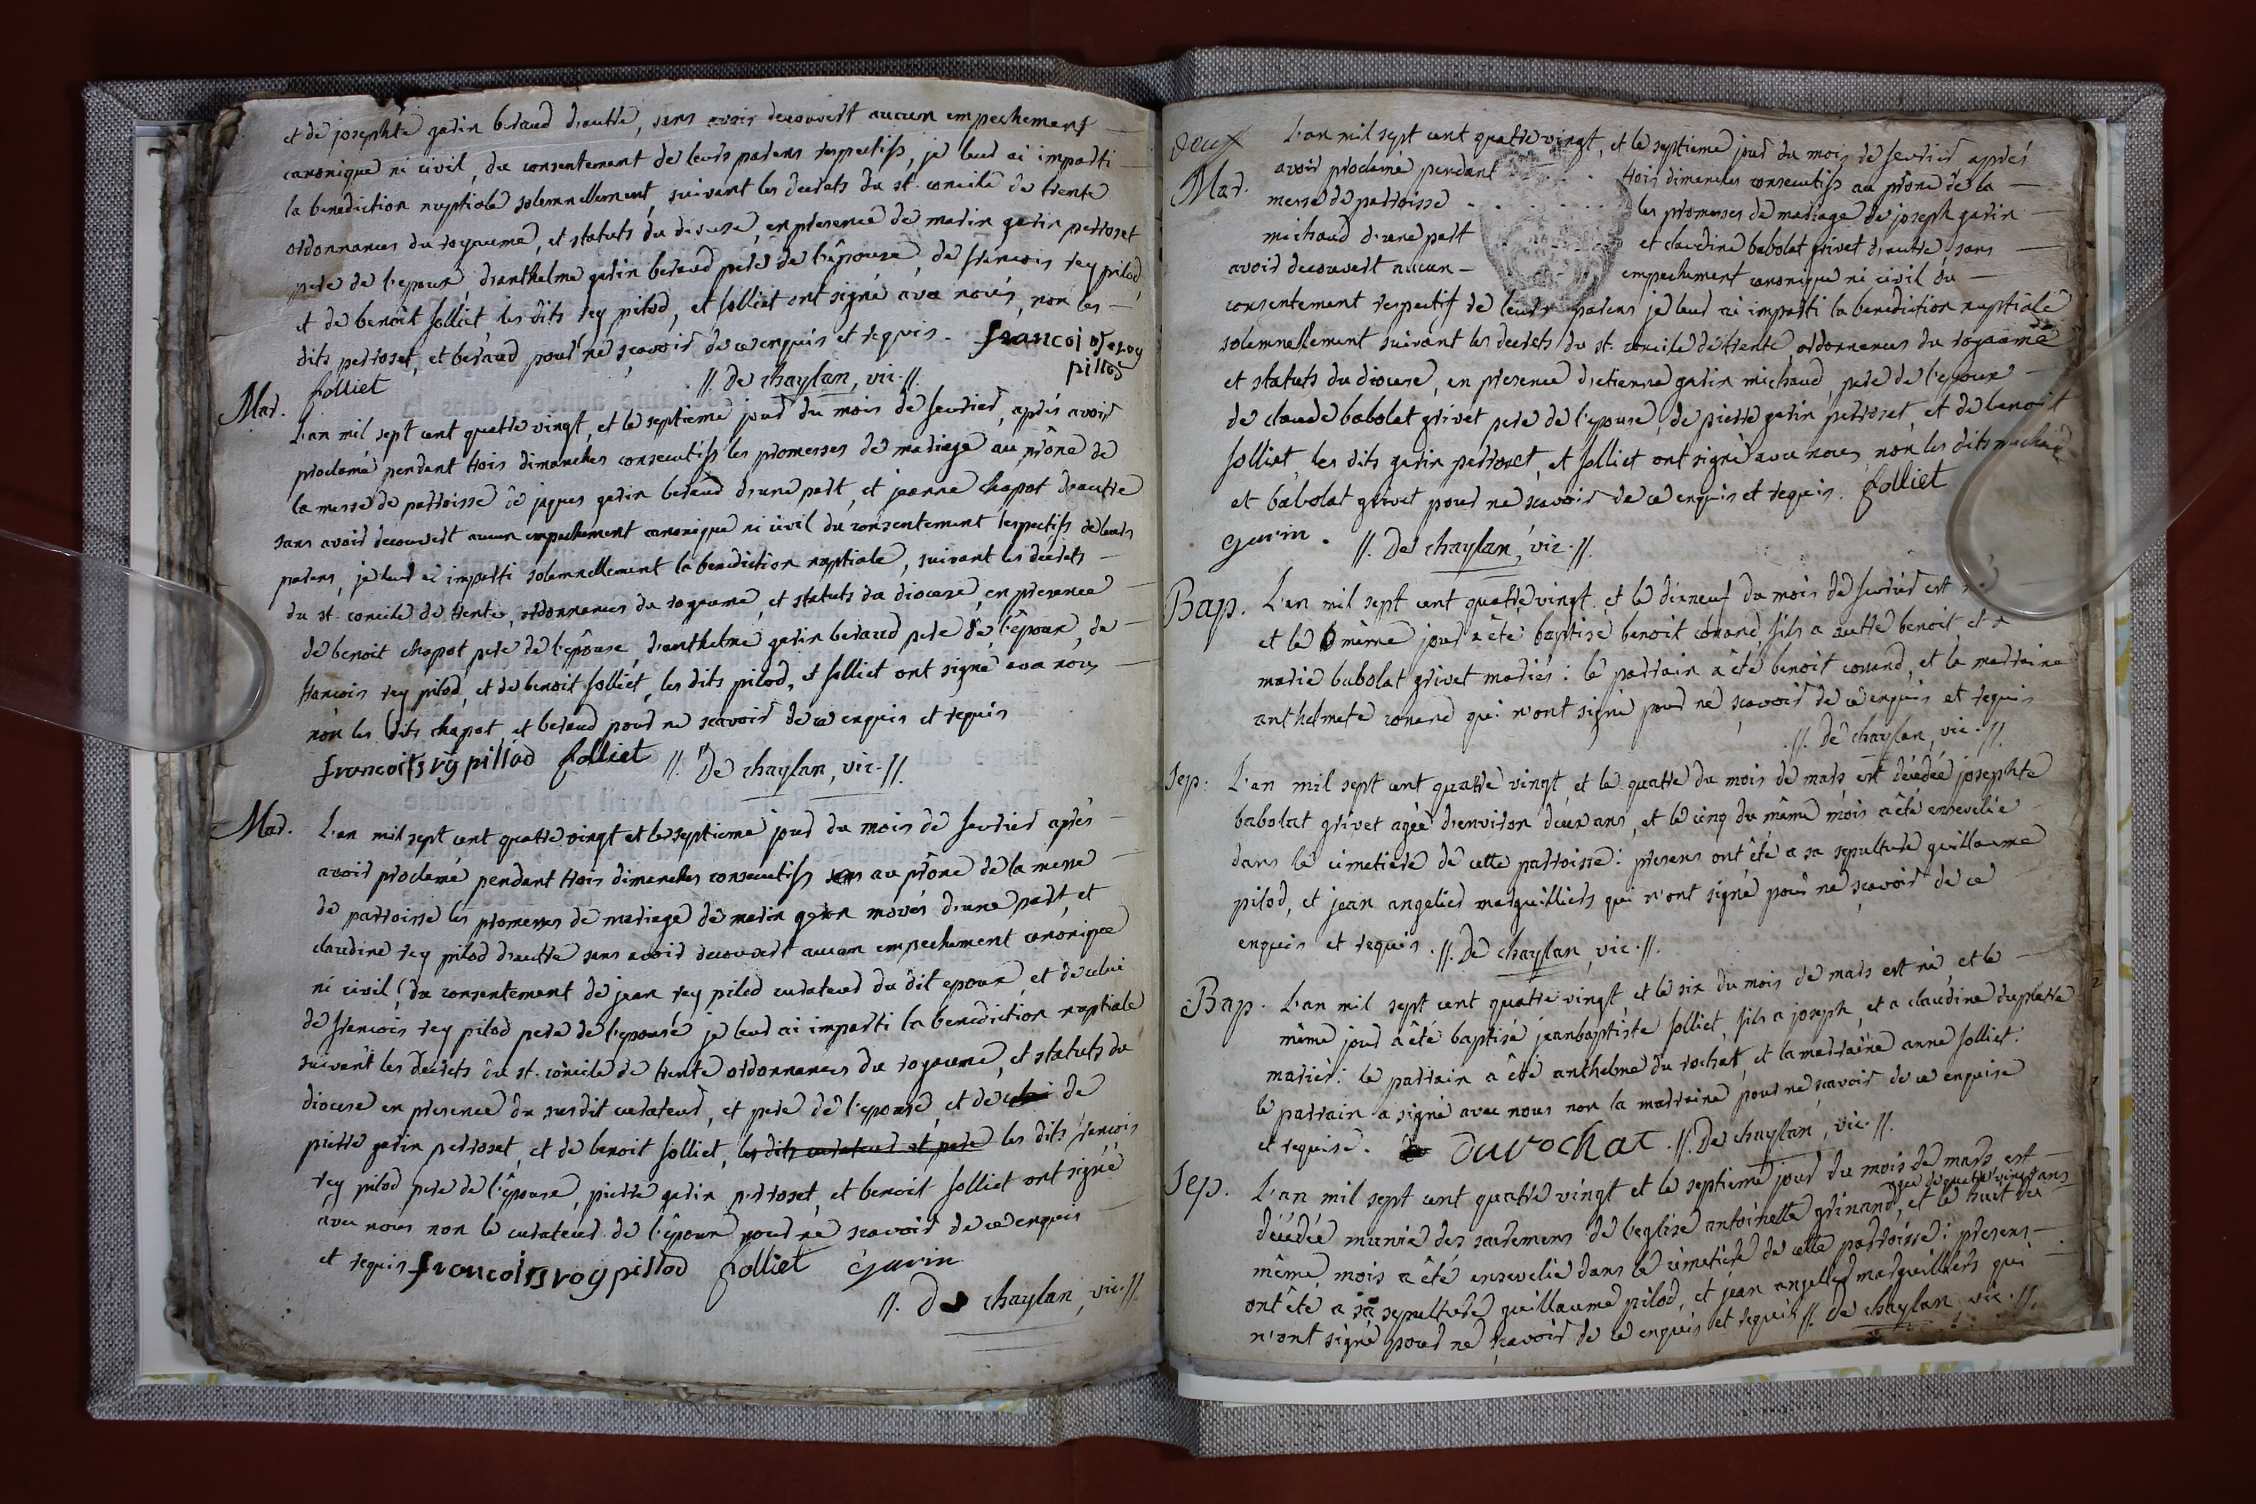 et de josephte garin beraud d'autre, sans avoir decouvert aucun empechement
canonique ni civil, du consentement de leurs parens respectifs, je leur ai imparti
la benediction nuptiale solemnellement, suivant les decrets du st. concile de trente
ordonnances du royaume, et statuts du diocese, en presence de marin garin perroset
pere de l'epoux, d'anthelme garin beraud pere de l'êpouse, de francois rey pilod,
et de benoit folliet, les dits rey pilod, et folliet ont signé avec nous, non les
dits perroset, et beraud pour ne sçavoir de ce enquis et requis. francois rey
pillod
folliet .//. De chaylan, vic.//.
Mar. L'an mil sept cent quatre vingt, et le septieme jour du mois de fevrier, aprés avoir
proclamé pendant trois dimanches consecutifs les promesses de mariage au prône de
la messe de parroisse de jaques garin beraud d'une part, et jeanne chapot d'autre
sans avoir decouvert aucun empechement canonique ni civil du consentement respectifs de leurs
parens, je leur ai imparti solemnellement la benediction nuptiale, suivant les decrets
du st. concile de trente, ordonnances du royaume, et statuts du diocese, en presence
de benoit chapot pere de l'êpouse, d'anthelme garin beraud pere de l'êpoux, de
francois rey pilod, et de benoit folliet, les dits pilod, et folliet ont signé avec nous
non les dits chapot, et beraud pour ne scavoir de ce enquis et requis
francoits rÿ pillod folliet //. De chaylan, vic.//.
Mar. L'an mil sept cent quatre vingt et le septieme jour du mois de fevrier aprés
avoir proclamé pendant trois dimanches consecutifs au prône de la messe
de parroisse les promesses de mariage de marin garin d'une part, et
claudine rey pilod d'autre sans avoir decouvert aucun empechement canonique
ni civil, du consentement de jean rey pilod curateur du dit epoux, et de celui
de francois rey pilod pere de l'epouse je leur ai imparti la benediction nuptiale
suivent les decrets du st. concile de trente ordonnances du royaume, et statuts du
diocese en presence du susdit curateur, et pere de l'epouse, et de celui de
pierre garin perroset, et de benoit folliet, les dits curateur et pere les dits francois
rey pilod pere de l'êpouse, pierre garin perroset, et benoit folliet ont signé
avec nous non le curateur de l'êpoux pour ne scavoir de ce enquis
et requis francois roy pillod folliet garin
//. De chaylan, vic.//.
deux L'an mil sept cent quatre vingt, et le septieme jour du mois de fevrier aprés
Mar. avoir proclamé pendant trois dimanches consecutifs au prone de la
messe de parroisse les promesses de mariage de joseph garin
michaud d'une part et claudine babolat grivet d'autre, sans
avoir decouvert aucun empechement canonique ni civil du
consentement respectif de leurs parens je leur ai imparti la benediction nuptiale
solemnellement suivant les decrets du st. concile de trente, ordonnances du royaume
et statuts du diocese, en presence d'etienne garin michaud, pere de l'epoux
de claude babolat grivet pere de l'epouse, de pierre garin perroset, et de benoit
folliet, les dits garin perroset, et folliet ont signé avec nous, non les dits michaud
et babolat grivet pour ne scavoir de ce enquis et requis. folliet
garin. //. De chaylan, vic.//.
Bap. L'an mil sept cent quatre vingt et le dixneuf du mois de fevrier est né
et le même jour a êté baptisé benoit conand fils a autre benoit et a
marie babolat grivet mariés: le parrain a été benoit conand, et la marraine
anthelmete conand qui n'ont signé pour ne sçavoir de ce enquis et requis
.//. De chaylan, vic.//.
Sep. L'an mil sept cent quatre vingt, et le quatre du mois de mars est décedée josephte
babolat grivet agée d'environ deux ans, et le cinq du même mois a êté ensevelie
dans le cimetiere de cette parroisse: presens ont êté a sa sepulture guillaume
pilod, et jean angelier marguilliers qui n'ont signé pour ne sçavoir de ce
enquis et requis .//. De chaylan, vic.//.
Bap. L'an mil sept cent quatre vingt, et le six du mois de mars est né, et le
même jour a été baptisé jeanbaptiste folliet, fils a joseph, et a claudine duplatre
mariés: le parrain a êté anthelme du rochat, et la marraine anne folliet:
le parrain a signé avec nous non la marraine pour ne scavoir de ce enquise
et requise. Durochat .//. De chaylan, vic.//.
Sep. L'an mil sept cent quatre vingt et le septieme jour du mois de mars est
agée de quatre vingt ans
décedée munie des sacremens de l'eglise antoinette grinand, et le huit du
même mois a êté ensevelie dans le cimetiere de cette parroisse: presens
ont êté a sa sepulture guillaume pilod, et jean angelier marguilliers qui
n'ont signé pour ne sçavoir de ce enquis et requis //. De chaylan, vic.//.